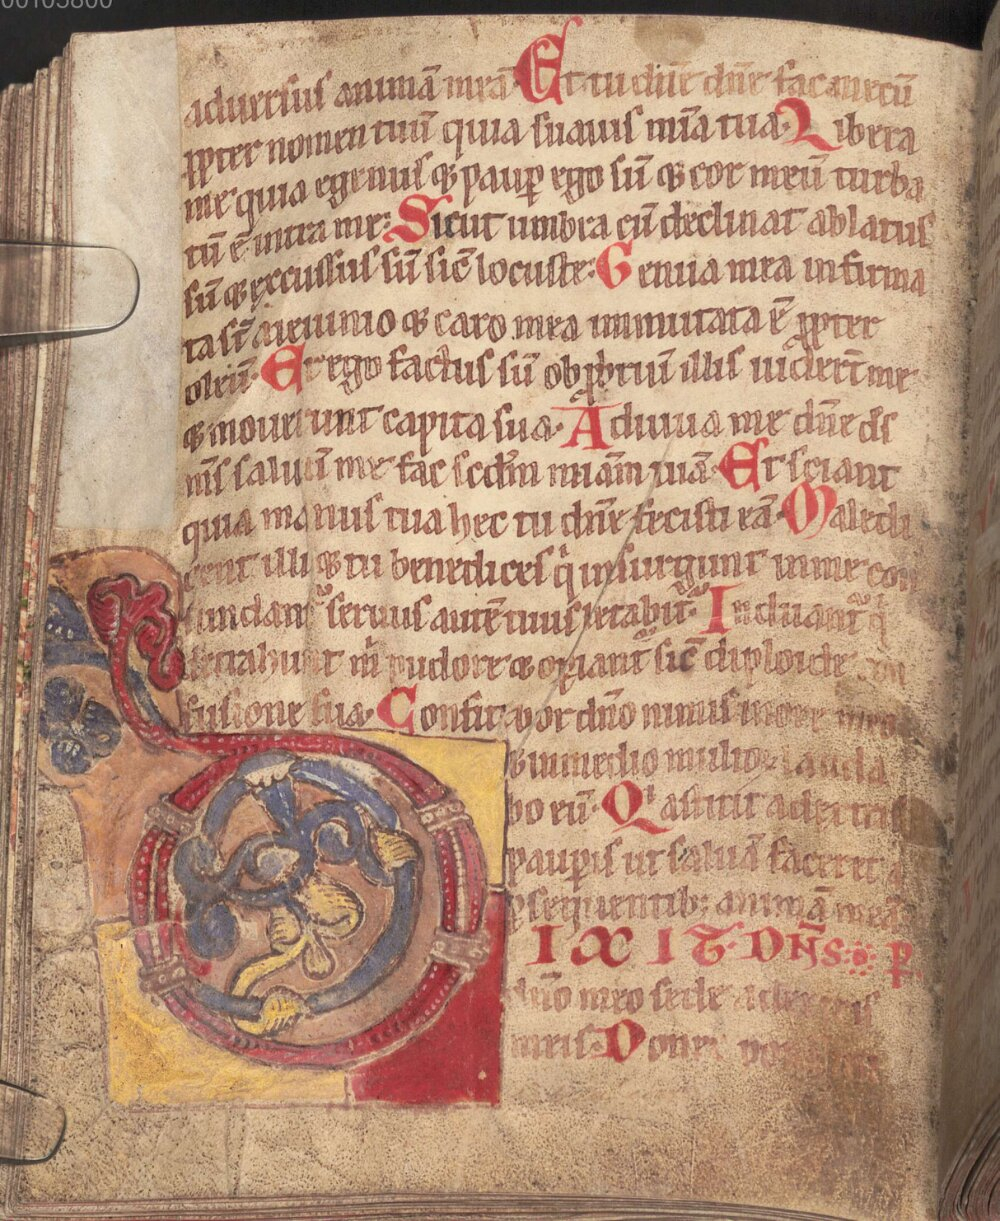 00105800
aduersus animā meā Et tu dn̄e dn̄e fac mecū
ꝓpter nomen tuū quia suauis mīa tua. Libera
me quia egenus ⁊ paup̄ ego sū ⁊ cor meū turba
tū ē intra me: Sicut umbra cū declinat ablatus
sū ⁊ excussus sū sic̄ locuste: Genua mea infirma
ta st̄ a ieiunio ⁊ caro mea inmutata ē ꝓpter
oleū. Et ego factus sū obprbriū illis uiderūt me
⁊ mouerunt capita sua. Adiuua me dn̄e ds̄
m̄s saluū me fac scdm̄ mīam tuā. Et sciant
quia manus tua hec tu dn̄e fecisti eā. Maledi
cent illi ⁊ tu benedices q̇ insurgunt in me con
fundant᷑ seruus autē tuus letabit᷑. Induant᷑ q̇
detrahunt m̄ pudore ⁊ opiant᷑ sic̄ diploide con
fusione sua. Confitebor dn̄o nimis in ore meo
⁊ in medio multoꝝ lauda
bo eū. Qi astitit a dextris
paupis ut saluā faceret a
ꝑsequentib; animā meā.
IXIT DN̄S
dn̄o meo sede a dextris
meis Donec